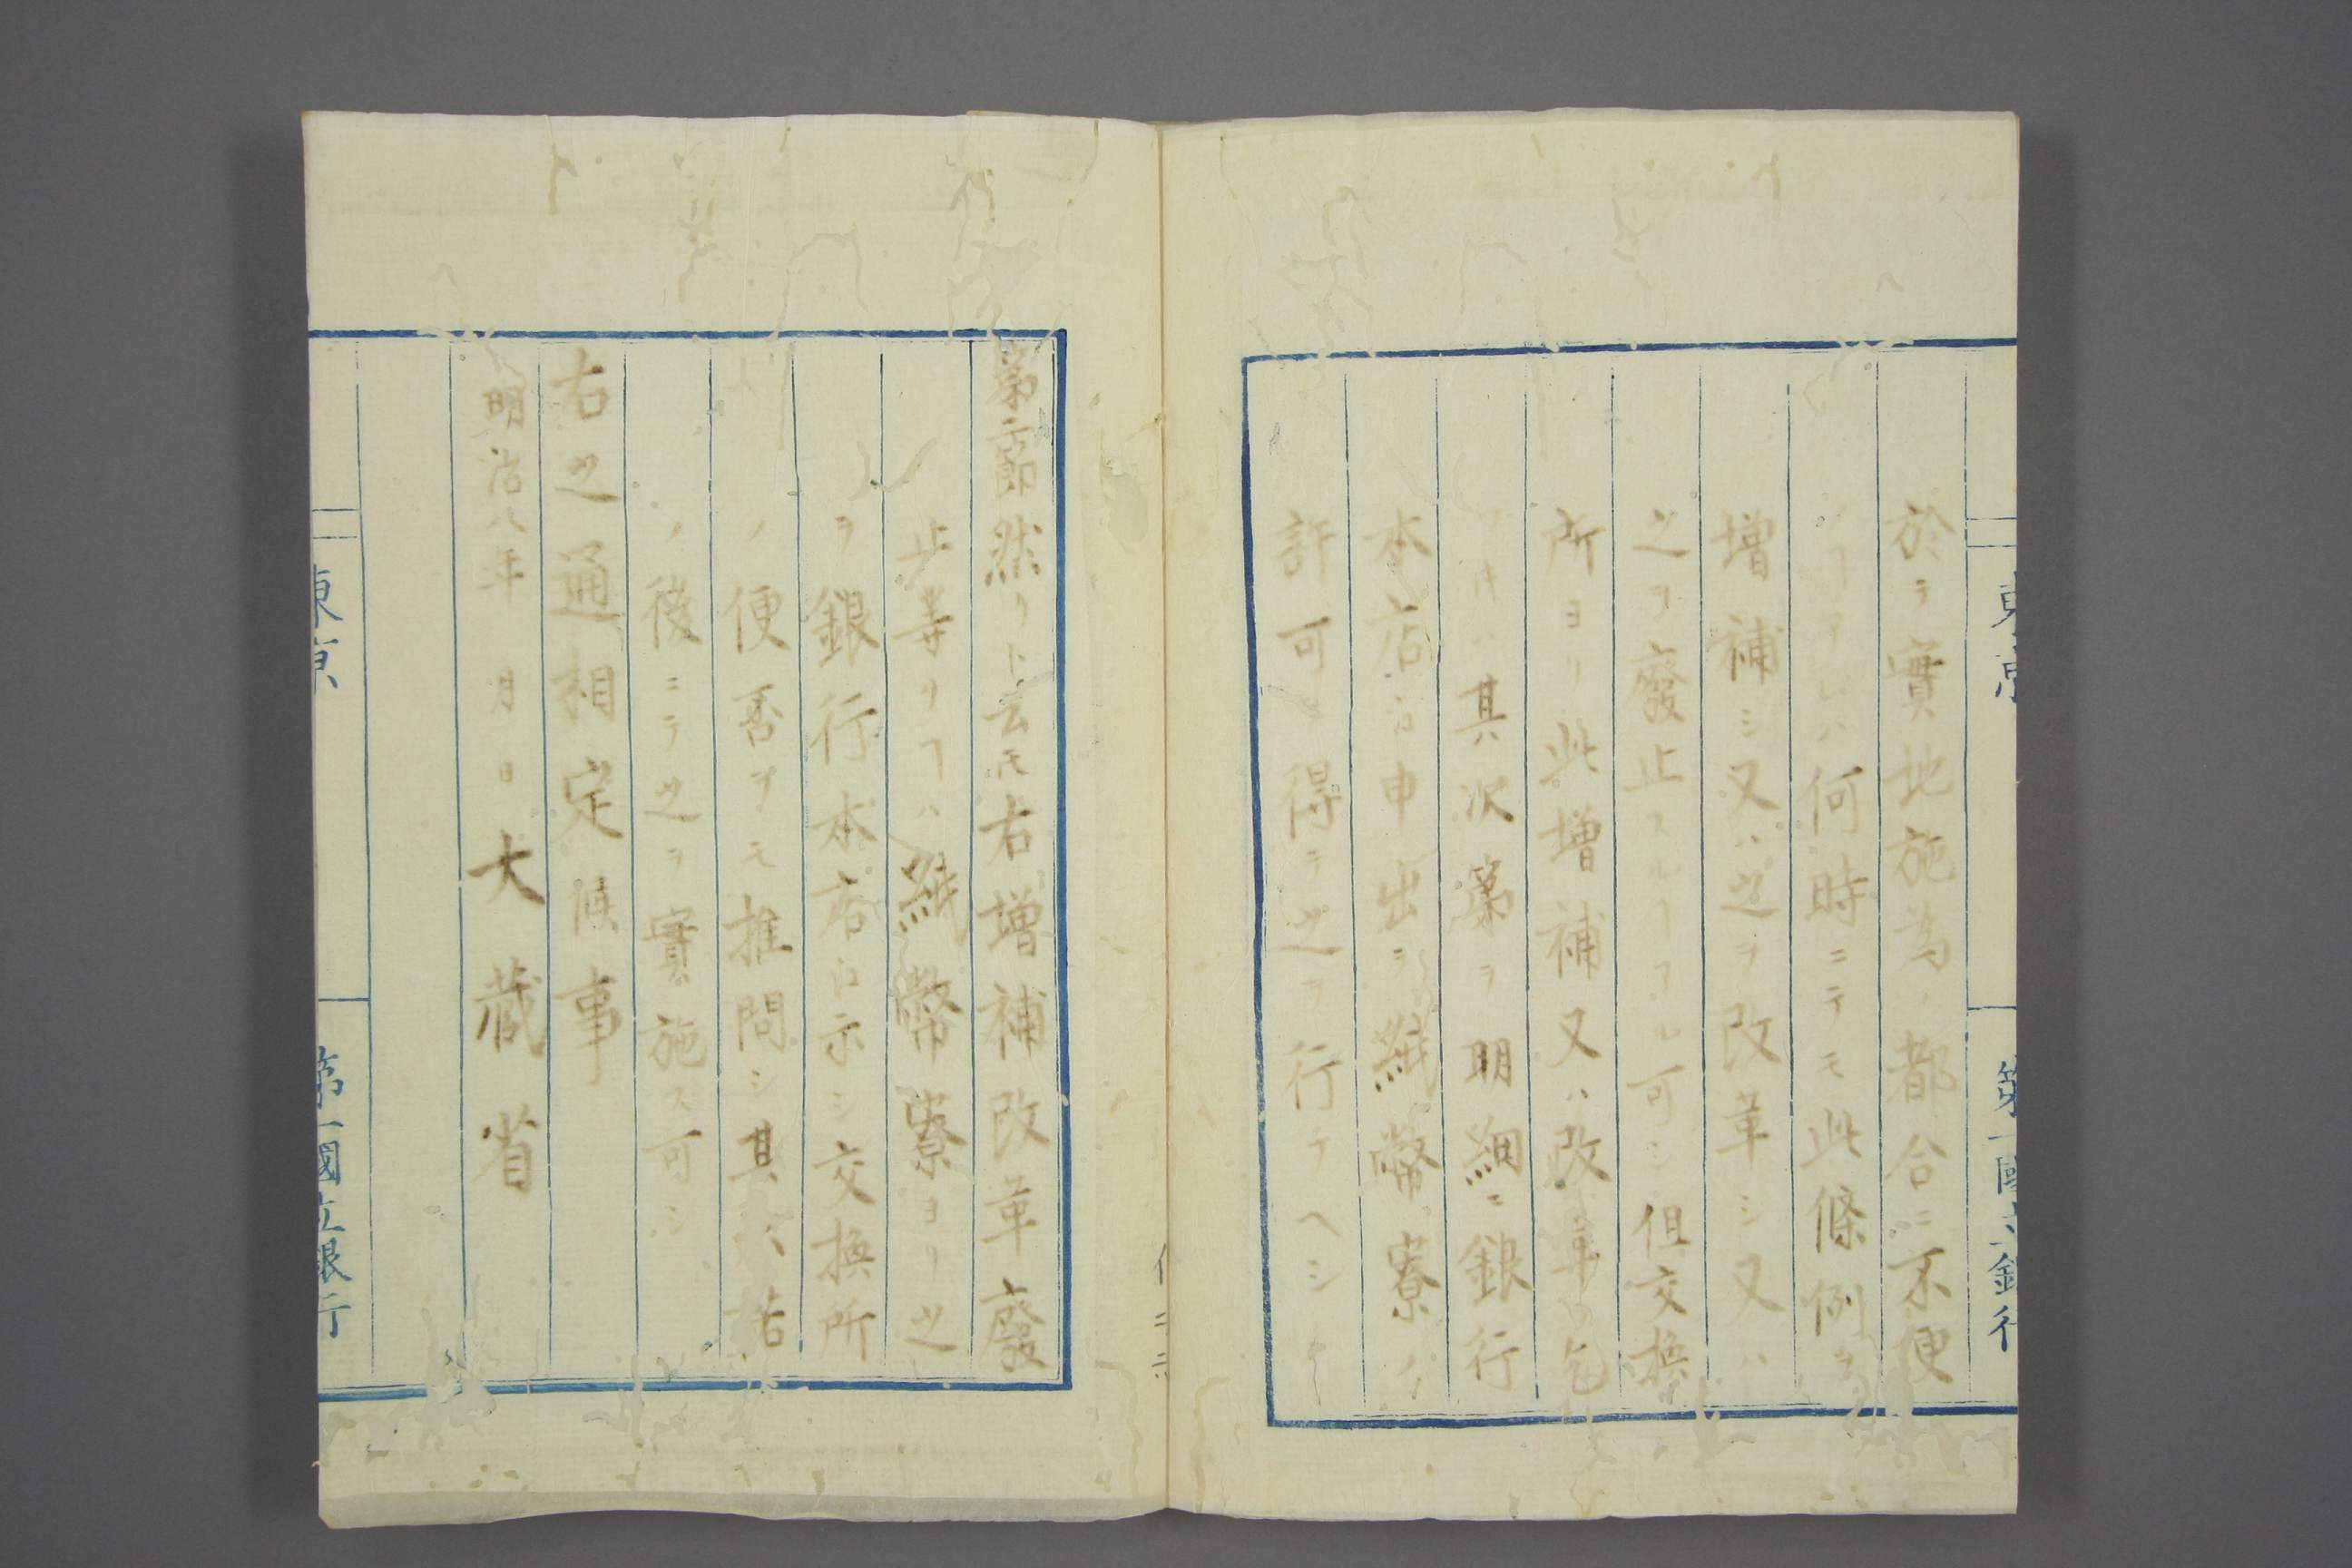 於テ實地施為ノ都合ニ不便
ノヿアレハ何時ニテモ此條例ヲ
増補シ又ハ之ヲ改革シ又ハ
之ヲ廢止スルヿアル可シ但交換
所ヨリ此増補又ハ改革ヲ乞
フ片ハ其次第ヲ明細ニ銀行
本店江申出テ紙幣寮ノ
許可ヲ得テ之ヲ行フヘシ
第二節然リト云𪜈右増補改革廢
止等ノヿハ紙幣寮ヨリ之
ヲ銀行本店江示シ交換所
ノ便否ヲモ推問シ其決答
ノ後ニテ之ヲ實施ス可シ
右之通相定候事
明治八年 月 日 大蔵省
東京
第一國立銀行